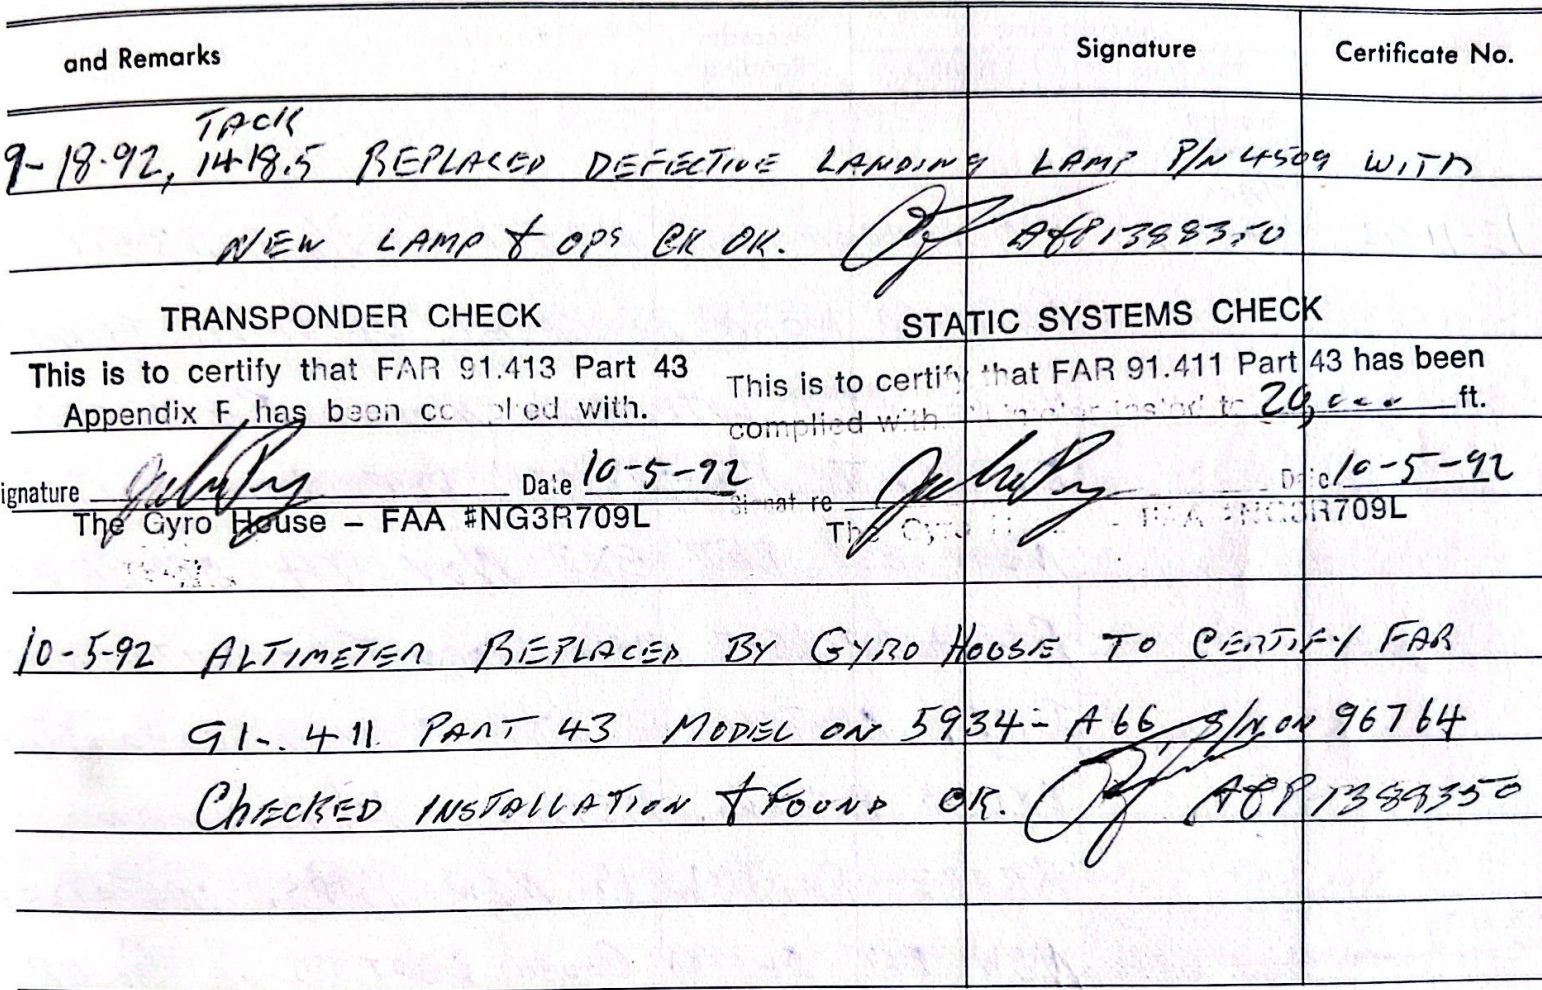 and Remarks Signature Certificate No.
TACK
9-18-92, 1418.5 REPLACED DEFECTIVE LANDING LAMP P/N 4509 WITH
NEW LAMP & OPS CK OK. A&P 1389350
TRANSPONDER CHECK
This is to certify that FAR 91.413 Part 43
Appendix F has been complied with.
ignature Date 10-5-92
The Gyro House – FAA #NG3R709L
STATIC SYSTEMS CHECK
This is to certify that FAR 91.411 Part 43 has been
complied with tested to 20,000 ft.
Signature Date 10-5-92
The Gyro House – FAA #NG3R709L
10-5-92 ALTIMETER REPLACED BY GYRO HOUSE TO CERTIFY FAR
91-.411. PART 43 MODEL ON 5934-A66, S/N ON 96764
CHECKED INSTALLATION & FOUND OK. A&P 1389350